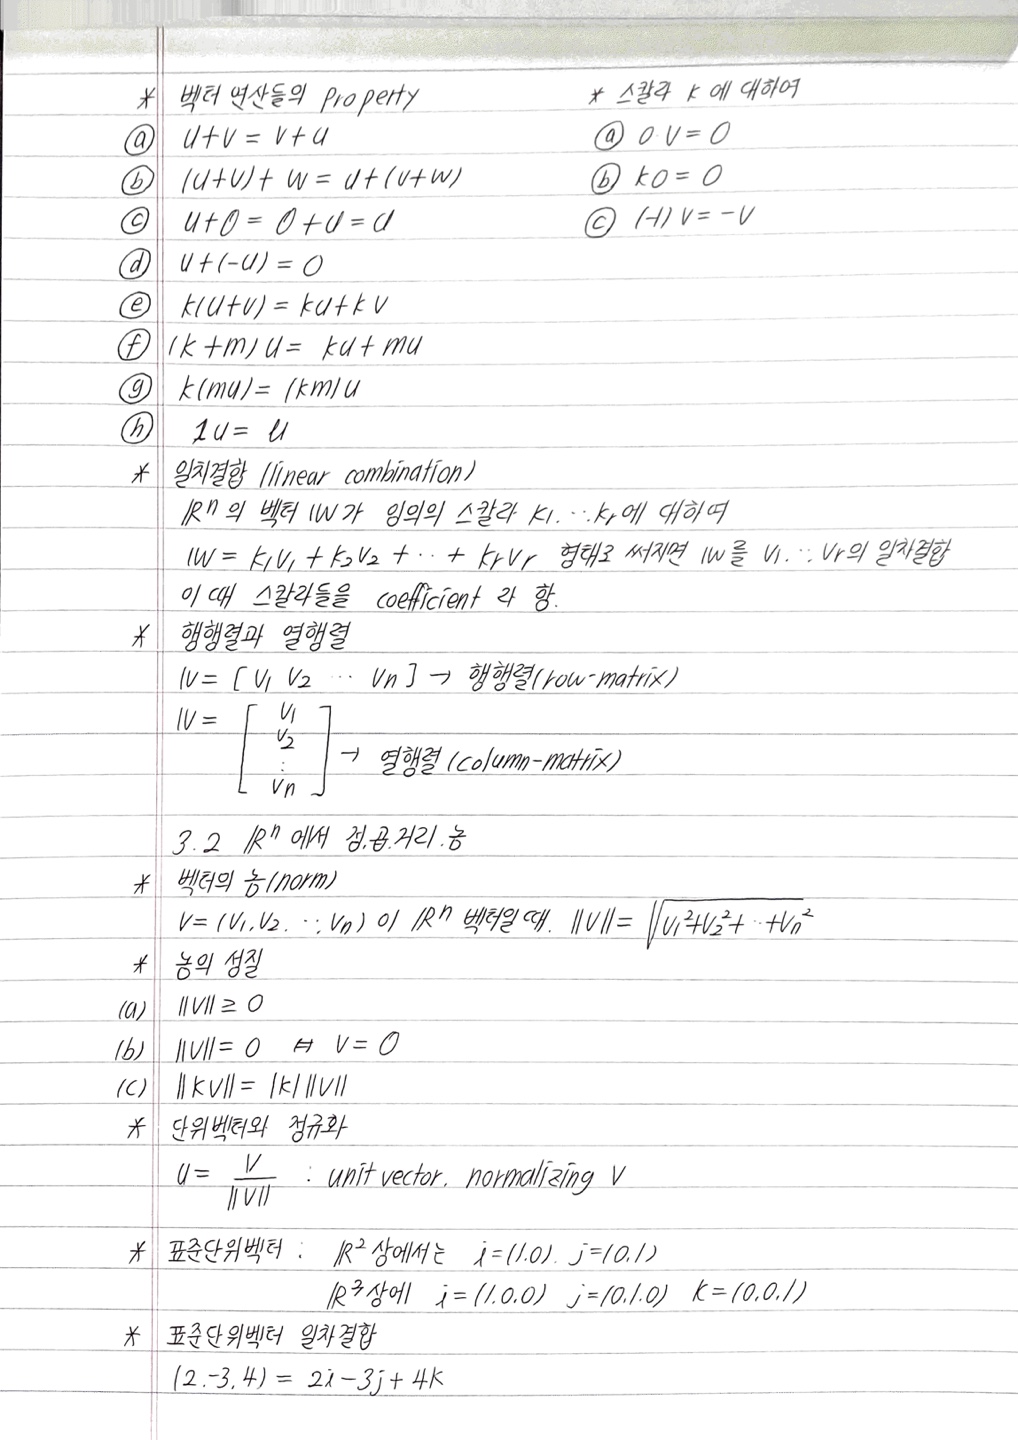 * 벡터 연산들의 Property
ⓐ u+v = v+u
ⓑ (u+v)+ w = u+(v+w)
ⓒ u+0 = 0+u = u
ⓓ u+(-u) = 0
ⓔ k(u+v) = ku+kv
ⓕ (k+m)u = ku+mu
ⓖ k(mu) = (km)u
ⓗ 1u = u
* 스칼라 k에 대하여
ⓐ 0·v = 0
ⓑ k0 = 0
ⓒ (-1)v = -v
* 일치결합 (linear combination)
ℝⁿ의 벡터 w가 임의의 스칼라 k₁. ⋯. kᵣ에 대하여
w = k₁v₁ + k₂v₂ + ⋯ + kᵣvᵣ 형태로 써지면 w를 v₁. ⋯. vᵣ의 일차결합
이 때 스칼라들을 coefficient 라 함.
* 행행렬과 열행렬
v = [ v₁ v₂ ⋯ vₙ ] → 행행렬(row-matrix)
v = [ v₁
v₂
⋮
vₙ ] → 열행렬 (column-matrix)
3.2 ℝⁿ 에서 점.곱.거리.놈
* 벡터의 놈(norm)
v = (v₁, v₂. ⋯, vₙ) 이 ℝⁿ 벡터일 때. ||v|| = √(v₁²+v₂²+ ⋯ +vₙ²)
* 놈의 성질
(a) ||v|| ≥ 0
(b) ||v|| = 0 ↔ v = 0
(c) ||kv|| = |k| ||v||
* 단위벡터와 정규화
u = v/||v|| : unit vector. normalizing v
* 표준단위벡터 : ℝ² 상에서는 i=(1.0). j=(0.1)
ℝ³상에 i=(1.0.0) j=(0.1.0) k=(0.0.1)
* 표준단위벡터 일차결합
(2.-3.4) = 2i-3j+4k